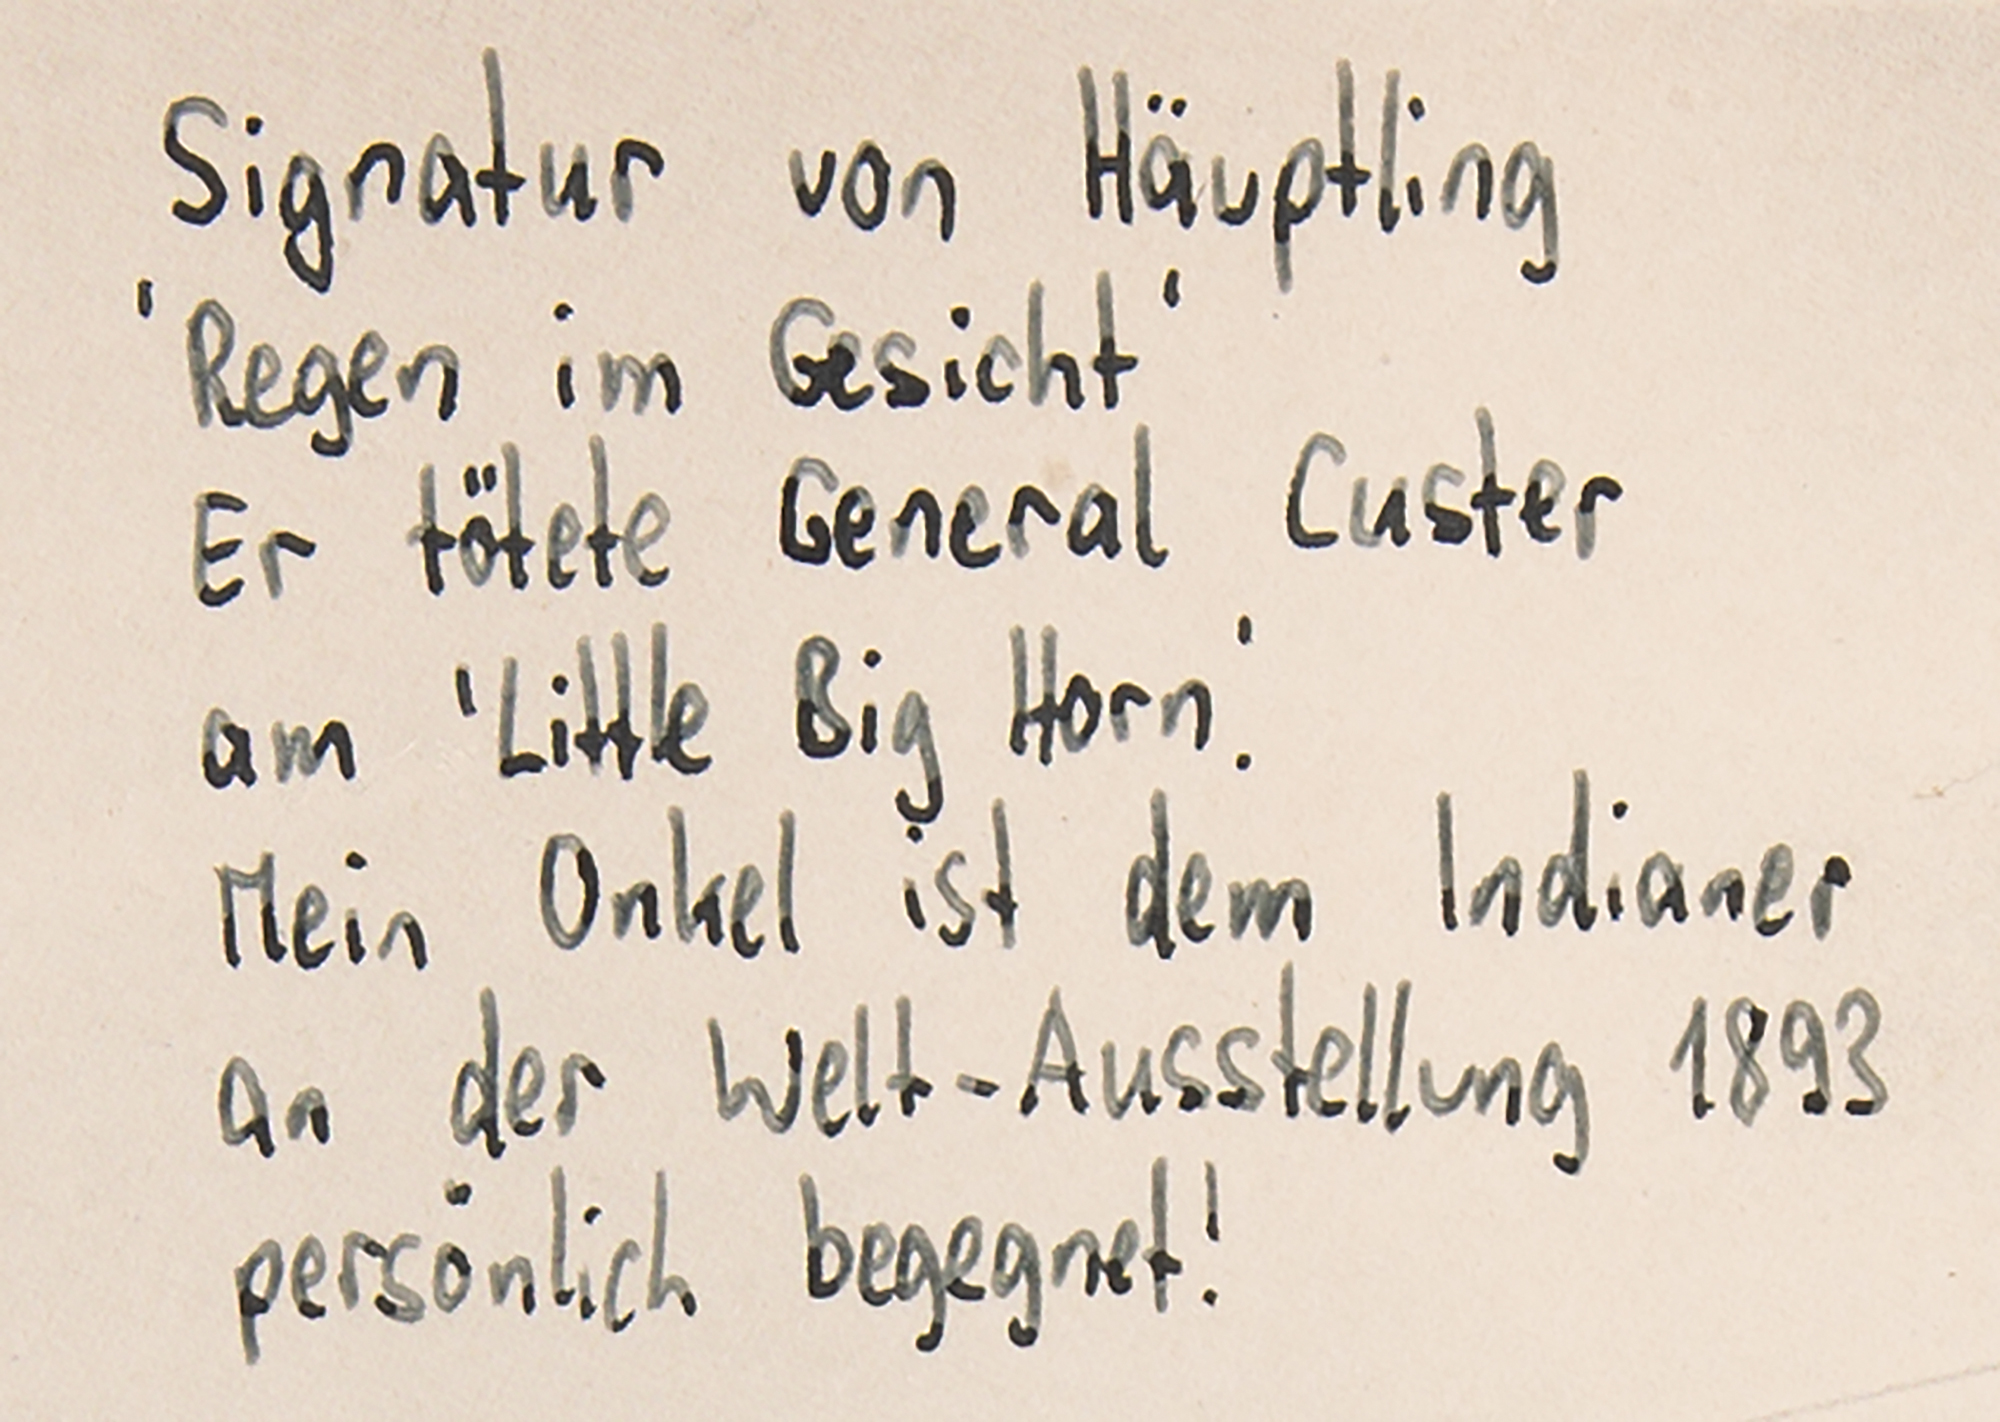 Signatur von Häuptling
'Regen im Gesicht'
Er tötete General Custer
am 'Little Big Horn'.
Mein Onkel ist dem Indianer
an der Welt-Ausstellung 1893
persönlich begegnet!